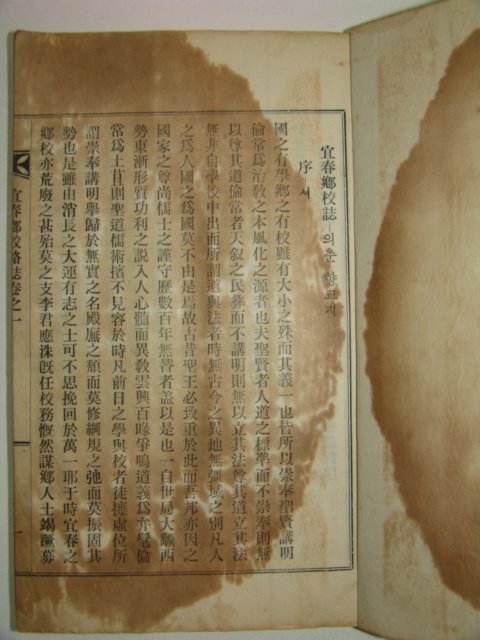 宜春鄕校誌 ― 의춘향교지
序 서
國之有學鄕之有校雖有大小之殊而其義一也皆所以崇奉聖賢講明
倫常爲治敎之本風化之源者也夫聖賢者人道之標準而不崇奉則無
以尊其道倫常者天叙之民彝而不講明則無以立其法尊其道立其法
無非自學校中出而所謂道與法者時無古今之異地無彊域之別凡人
之爲人國之爲國莫不由是焉故古昔聖王必致重於此而吾邦亦因之
國家之尊尚儒士之謹守歷數百年無替者盖以是也一自世局大飜西
勢東漸形質功利之說入人心髓而異敎雲興百喙爭鳴道義爲弁髦倫
常爲土苴則聖道儒術擯不見容於時凡前日之學與校者徒擁虛位所
謂崇奉講明擧歸於無實之名殿廡之頹而莫修綱規之弛而莫振固其
勢也是雖由消長之大運有志之士可不思挽回於萬一耶于時宜春之
鄕校亦荒廢之甚殆莫之支李君應洙旣任校務慨然謀鄕人士竭蹶募
宜春鄕校略誌卷之一
一